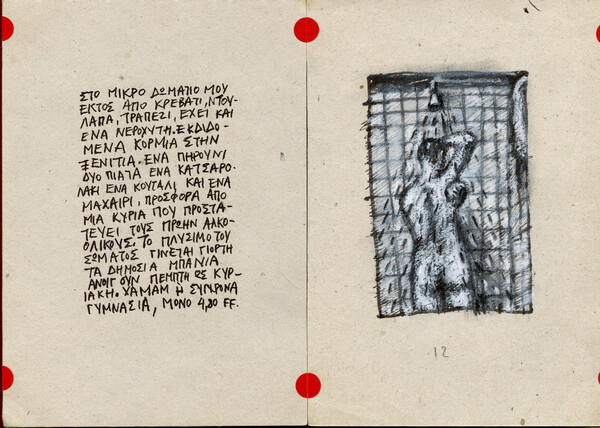 ΣΤΟ ΜΙΚΡΟ ΔΩΜΑΤΙΟ ΜΟΥ
ΕΚΤΟΣ ΑΠΟ ΚΡΕΒΑΤΙ, ΝΤΟΥ-
ΛΑΠΑ, ΤΡΑΠΕΖΙ, ΕΧΕΙ ΚΑΙ
ΕΝΑ ΝΕΡΟΧΥΤΗ. ΕΚΔΙΔΟ-
ΜΕΝΑ ΚΟΡΜΙΑ ΣΤΗΝ
ΞΕΝΙΤΙΑ. ΕΝΑ ΠΗΡΟΥΝΙ
ΔΥΟ ΠΙΑΤΑ ΕΝΑ ΚΑΤΣΑΡΟ-
ΛΑΚΙ ΕΝΑ ΚΟΥΤΑΛΙ ΚΑΙ ΕΝΑ
ΜΑΧΑΙΡΙ, ΠΡΟΣΦΟΡΑ ΑΠΟ
ΜΙΑ ΚΥΡΙΑ ΠΟΥ ΠΡΟΣΤΑ-
ΤΕΥΕΙ ΤΟΥΣ ΠΡΩΗΝ ΑΛΚΟ-
ΟΛΙΚΟΥΣ. ΤΟ ΠΛΥΣΙΜΟ ΤΟΥ
ΣΩΜΑΤΟΣ ΓΙΝΕΤΑΙ ΓΙΟΡΤΗ
ΤΑ ΔΗΜΟΣΙΑ ΜΠΑΝΙΑ
ΑΝΟΙΓΟΥΝ ΠΕΜΠΤΗ ΩΣ ΚΥΡ-
ΙΑΚΗ. ΧΑΜΑΜ Ή ΣΥΓΧΡΟΝΑ
ΓΥΜΝΑΣΙΑ, ΜΟΝΟ 4,80 FF.
12